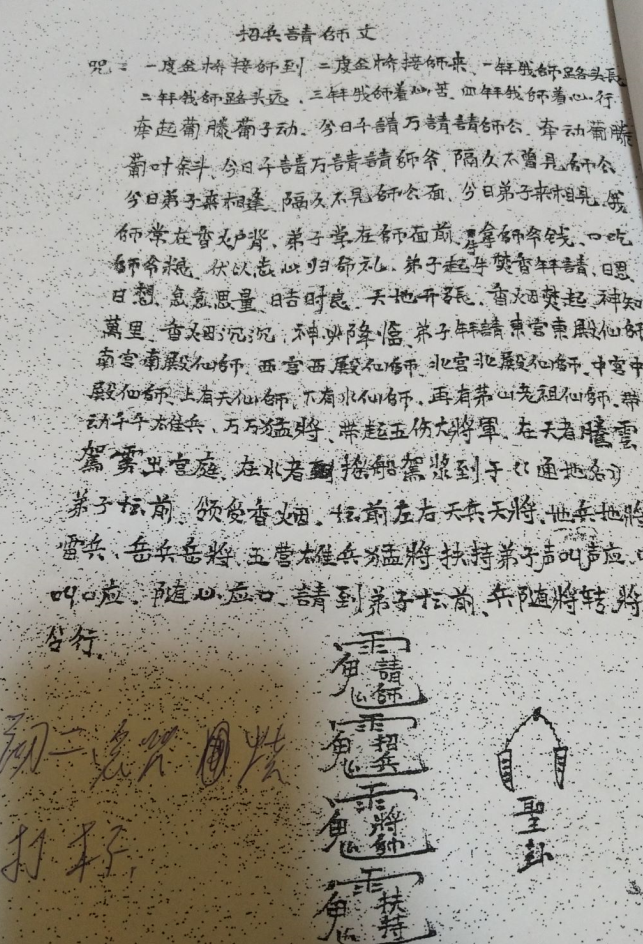 招兵請師文
咒：一度金桥接師到 二度金桥接師来、一拜我師路头長
二拜我師路头远、三拜我師着心苦、四拜我師着心行
牵起葡籐葡子动、今日千請万請請師公、牵动葡籐
葡叶斜、今日千請万請請師爷、隔久不曾見師公
今日弟子来相逢、隔久不見師公面、今日弟子来相見、我
師常在香炉背、弟子常在師面前、拿師爷钱、口吃
師爷粮、伏以志心归命礼、弟子起手焚香拜請、日思
日想、急急思量、日吉时良、天地开張、香烟焚起、神知
萬里、香烟沉沉、神必降临、弟子拜請東宫東殿仙師
南宫南殿仙師、西宫西殿仙師、北宫北殿仙師、中宫中
殿仙師、上有天仙師、下有水仙師、再有茅山老祖仙師、带
动千千雄兵、万万猛將、带起五伤大將軍、在天者騰雲
駕雾出宫庭、在水者摇船駕浆到于《通地名》
弟子坛前、领受香烟、坛前左右天兵天將、地兵地將
雷兵、岳兵岳將、五营雄兵猛將扶持弟子声叫声应、口
叫口应、随心应口、請到弟子坛前、兵随將转、將
行、
請師
招兵
將師
扶持
聖卦